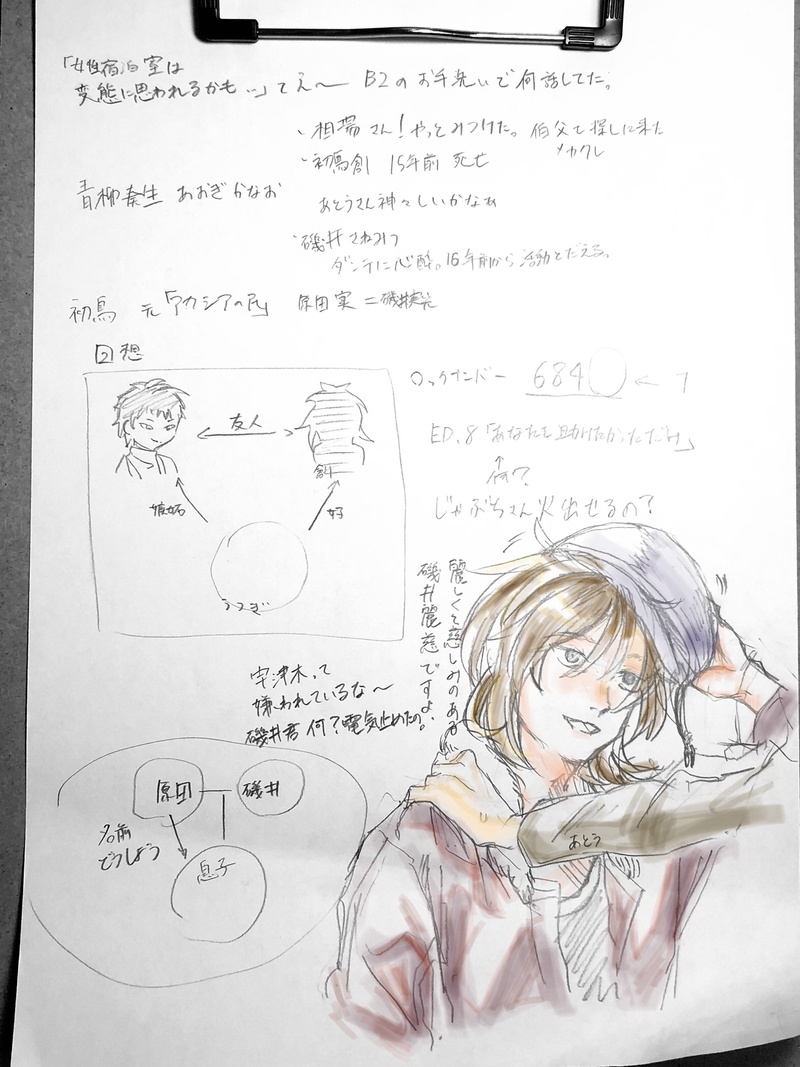 「女性宿泊室は
変態に思われるかも…」てえ〜 B2のお手洗いで何話してた。
・相場さん!やっとみつけた。伯父で探しに来た
メカクレ
・初鳥創 15年前 死亡
青柳奏生 あおぎ かなお
あとうさん神々しいかなぁ
・磯井さねみつ
ダンテに心酔。16年前から活動とだえる。
初鳥 元「アカシアの
原田実=磯井実光
回想
友人
創
嫉妬
好
うつぎ
ロックナンバー 684 ← 7
ED.8「あなたを助けたかっただけ」
↑
何?
じゃぶちゃん火出せるの?
麗しくて慈しみのある
磯井麗慈ですよ。
宇津木って
嫌われているな〜
磯井君 何?電気止めたの。
原田
磯井
名前
どうしよう
息子
あとう